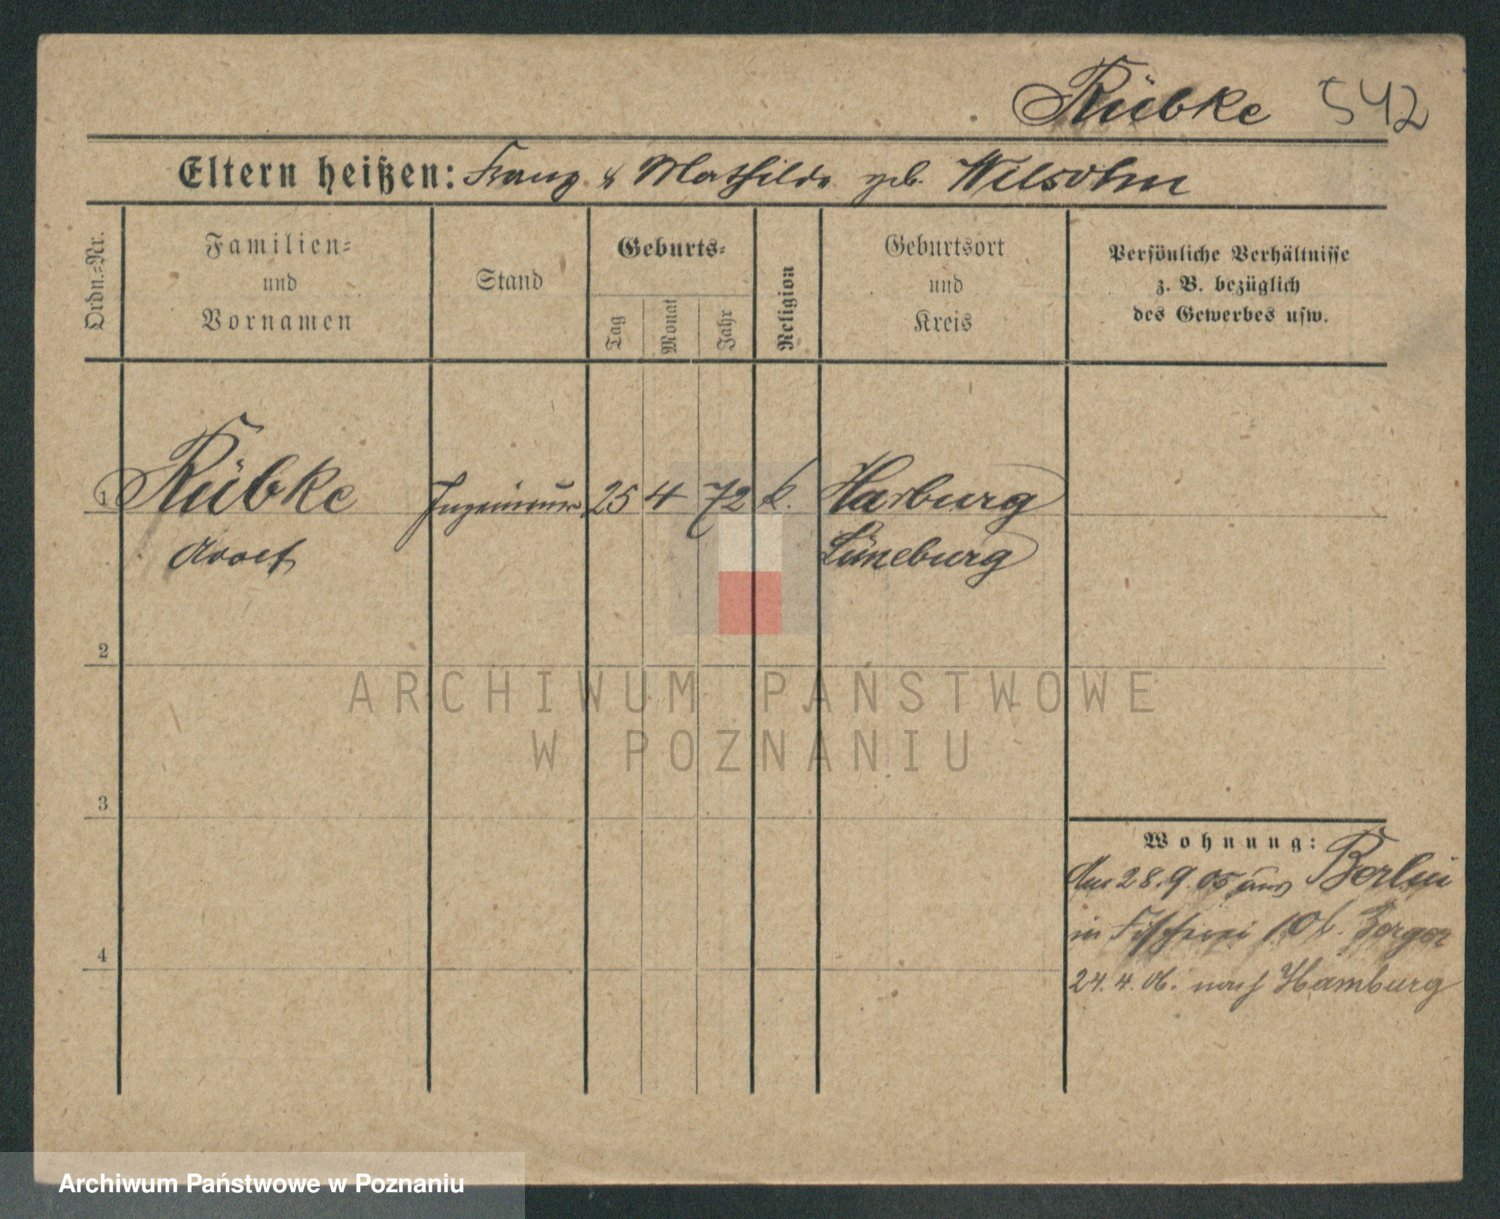 Rübke 542
Eltern heißen: Franz & Mathilde geb. Wilsohn
Ordn.-Nr.
Familien-
und
Vornamen
Stand
Geburts-
Tag
Monat
Jahr
Religion
Geburtsort
und
Kreis
Persönliche Verhältnisse
z. B. bezüglich
des Gewerbes usw.
1 Rübke Ingenieur 25 4 72 k. Harburg
Adolf Lüneburg
2
ARCHIWUM PAŃSTWOWE
W POZNANIU
3
Wohnung:
28.9.05 aus Berlin
in Fischerei 10 b.
24.4.06. nach Hamburg
4
Archiwum Państwowe w Poznaniu